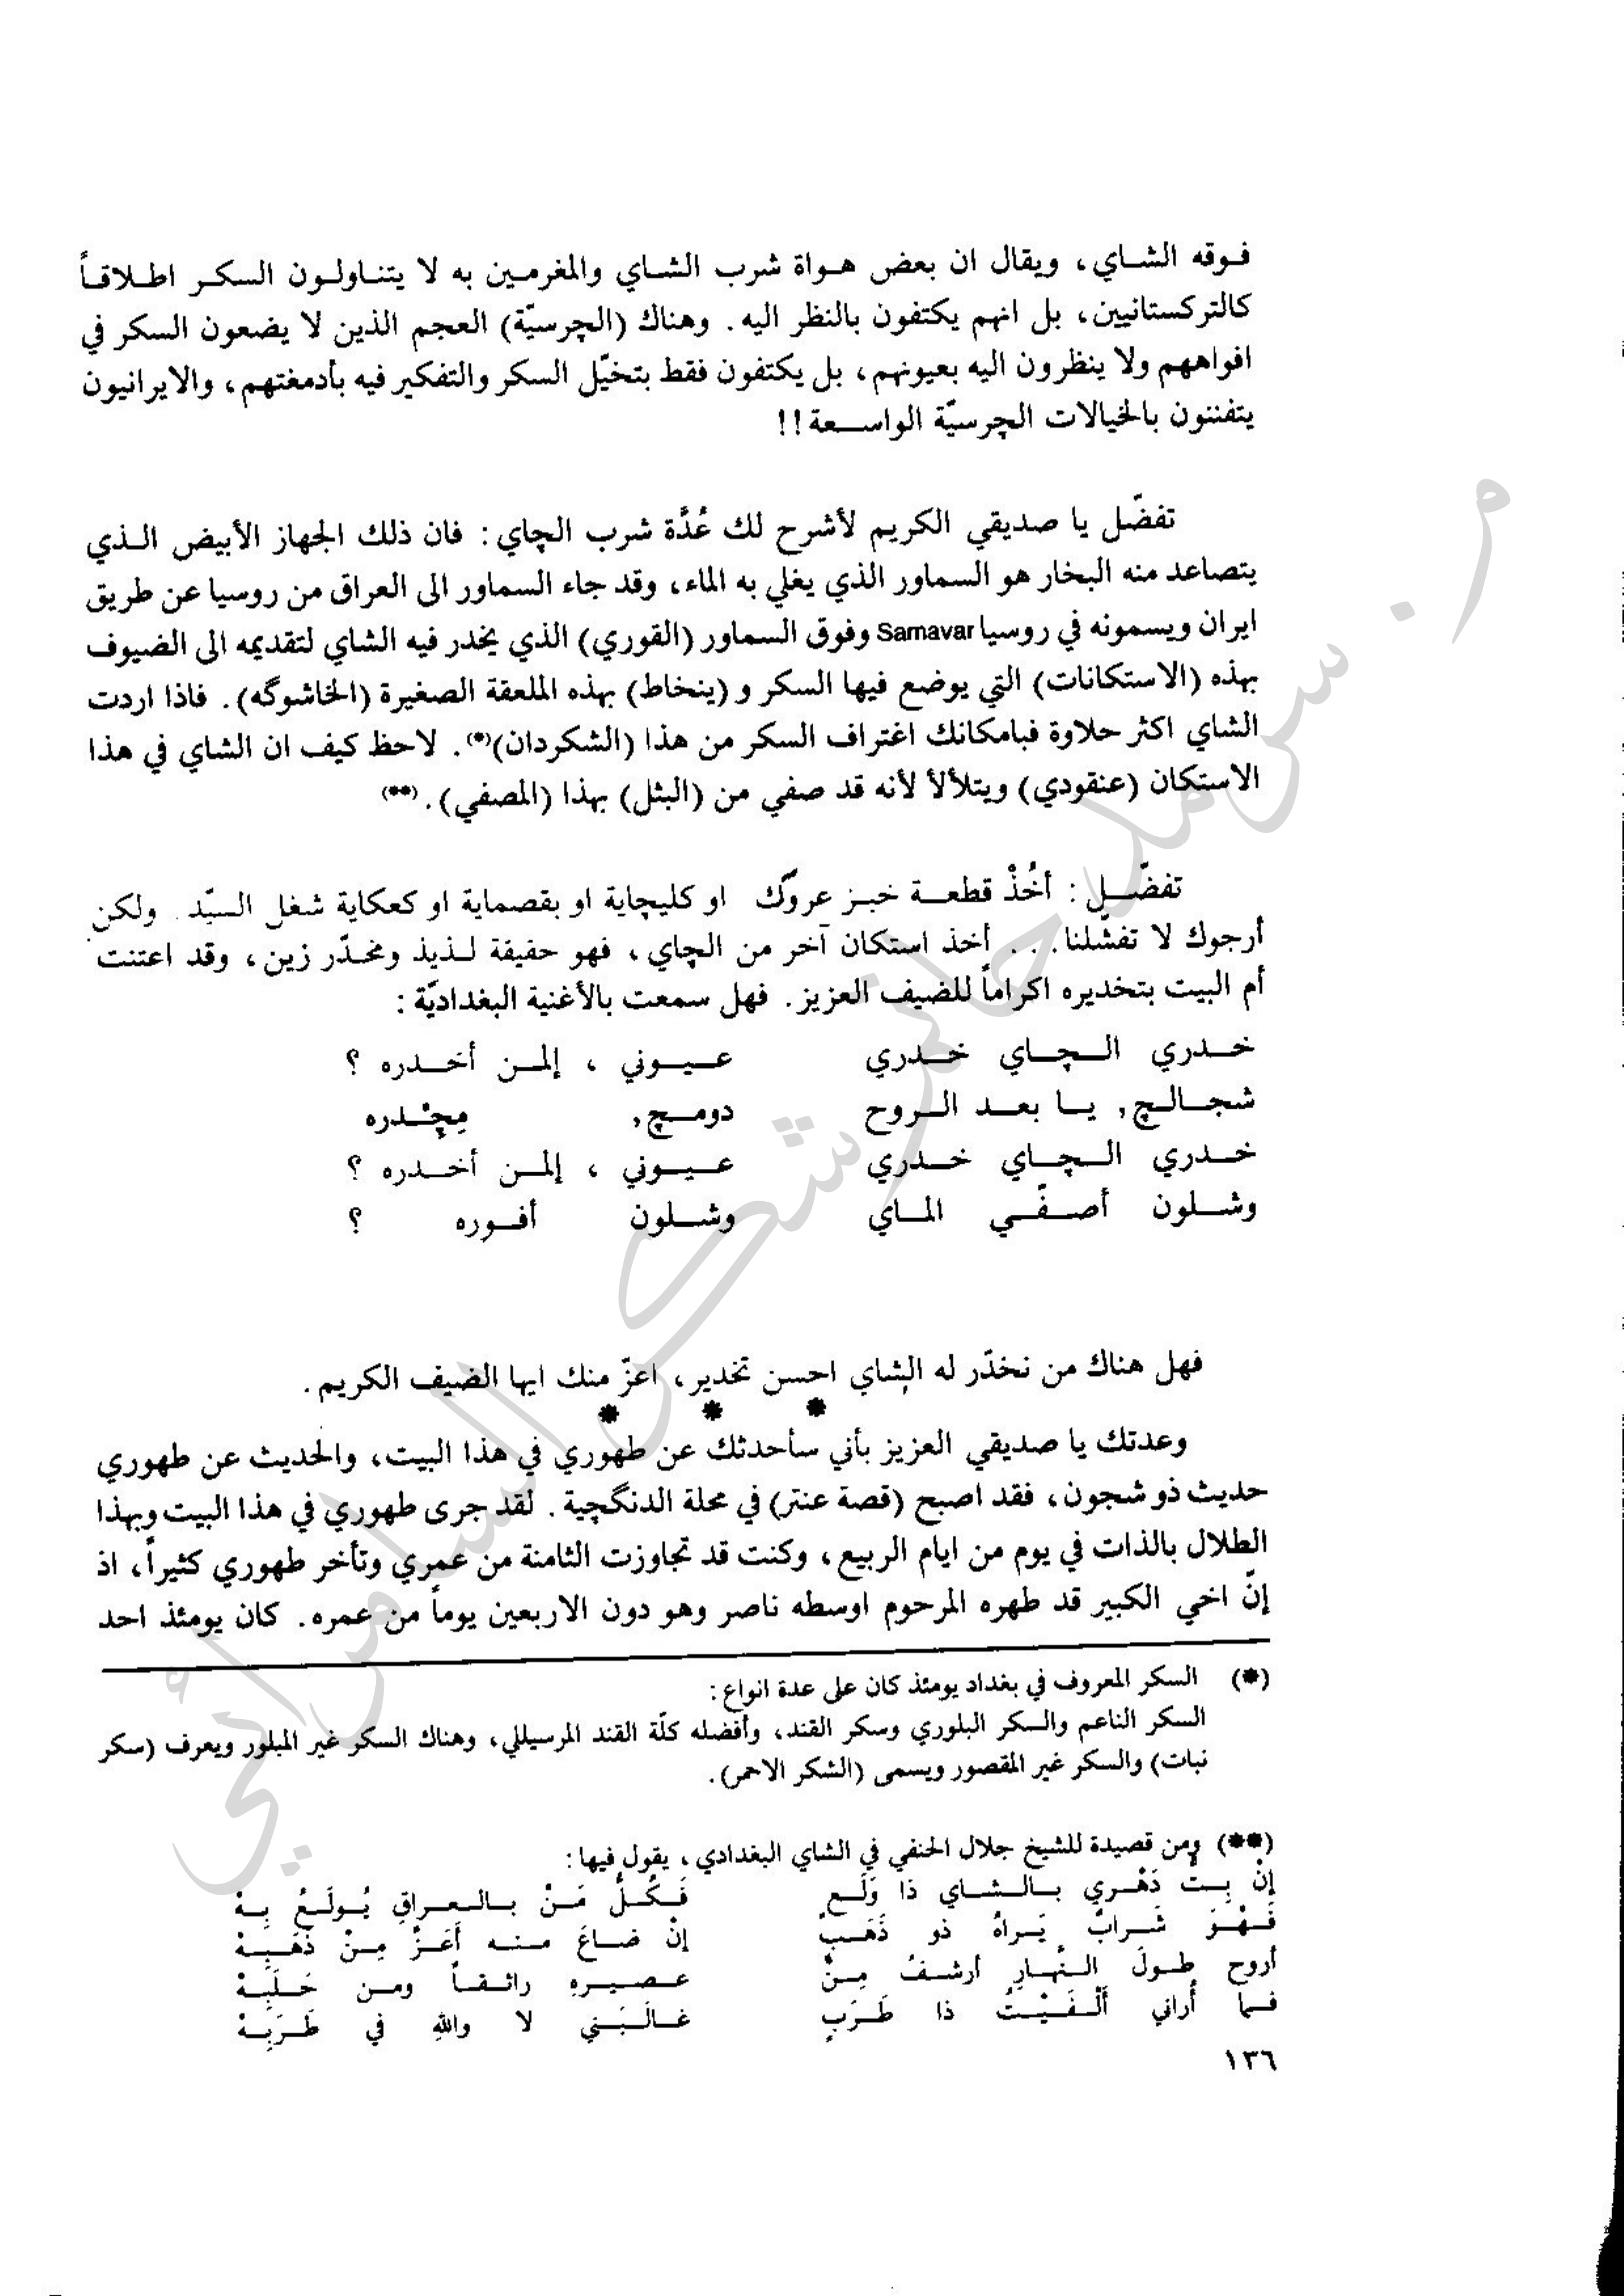 فوقه الشاي، ويقال ان بعض هواة شرب الشاي والمغرمين به لا يتناولون السكر اطلاقاً
كالتركستانيين، بل انهم يكتفون بالنظر اليه. وهناك (الچرسيّة) العجم الذين لا يضعون السكر في
افواههم ولا ينظرون اليه بعيونهم، بل يكتفون فقط بتخيّل السكر والتفكير فيه بأدمغتهم، والايرانيون
يتفننون بالخيالات الچرسيّة الواسعة!!
تفضّل يا صديقي الكريم لأشرح لك عُدَّة شرب الچاي: فان ذلك الجهاز الأبيض الذي
يتصاعد منه البخار هو السماور الذي يغلي به الماء، وقد جاء السماور الى العراق من روسيا عن طريق
ايران ويسمونه في روسيا Samavar وفوق السماور (القوري) الذي يخدر فيه الشاي لتقديمه الى الضيوف
بهذه (الاستكانات) التي يوضع فيها السكر و (ينخاط) بهذه الملعقة الصغيرة (الخاشوگه). فاذا اردت
الشاي اكثر حلاوة فبامكانك اغتراف السكر من هذا (الشكردان)(*). لاحظ كيف ان الشاي في هذا
الاستكان (عنقودي) ويتلألأ لأنه قد صفي من (البثل) بهذا (المصفي).(**)
تفضّل: أُخُذْ قطعة خبز عروّگ او كليچاية او بقصماية او كعكاية شغل السيّد. ولكن
أرجوك لا تفشّلنا... أخذ استكان آخر من الچاي، فهو حقيقة لذيذ ومخدّر زين، وقد اعتنت
أم البيت بتخديره اكراماً للضيف العزيز. فهل سمعت بالأغنية البغداديّة:
خدري الچاي خدري عيوني، إلمن أخدره ؟
شجالچ, يا بعد الروح دومچ, مِچْدره
خدري الچاي خدري عيوني، إلمن أخدره ؟
وشلون أصفّي الماي وشلون أفوره ؟
فهل هناك من نخدّر له الشاي احسن تخدير، اعزّ منك ايها الضيف الكريم.
* * *
وعدتك يا صديقي العزيز بأني سأحدثك عن طهوري في هذا البيت، والحديث عن طهوري
حديث ذو شجون، فقد اصبح (قصة عنتر) في محلة الدنگچية. لقد جرى طهوري في هذا البيت وبهذا
الطلال بالذات في يوم من ايام الربيع، وكنت قد تجاوزت الثامنة من عمري وتأخر طهوري كثيراً، اذ
إنّ اخي الكبير قد طهره المرحوم اوسطه ناصر وهو دون الاربعين يوماً من عمره. كان يومئذ احد
(*) السكر المعروف في بغداد يومئذ كان على عدة انواع:
السكر الناعم والسكر البلوري وسكر القند، وأفضله كلّة القند المرسيللي، وهناك السكر غير المبلور ويعرف (سكر
نبات) والسكر غير المقصور ويسمى (الشكر الاحمر).
(**) ومن قصيدة للشيخ جلال الحنفي في الشاي البغدادي، يقول فيها:
إنْ بِتُّ دَهْري بالشاي ذا وَلَعٍ فَكُلُّ مَنْ بالعراقِ يُولَعُ بِهْ
فَهْوَ شَرابٌ يَراهُ ذو ذَهَبٍ إنْ ضاعَ منه أَعَزَّ مِنْ ذَهَبِهْ
أروح طولَ النَّهارِ أرشفُ مِنْ عصيرهِ رائقاً ومن حَلَبِهْ
فما أُراني أَلْفَيْتُ ذا طَرَبٍ غالَبَني لا واللهِ في طَرَبِهْ
١٣٦
م. سرمد حاتم شكر السامرائي